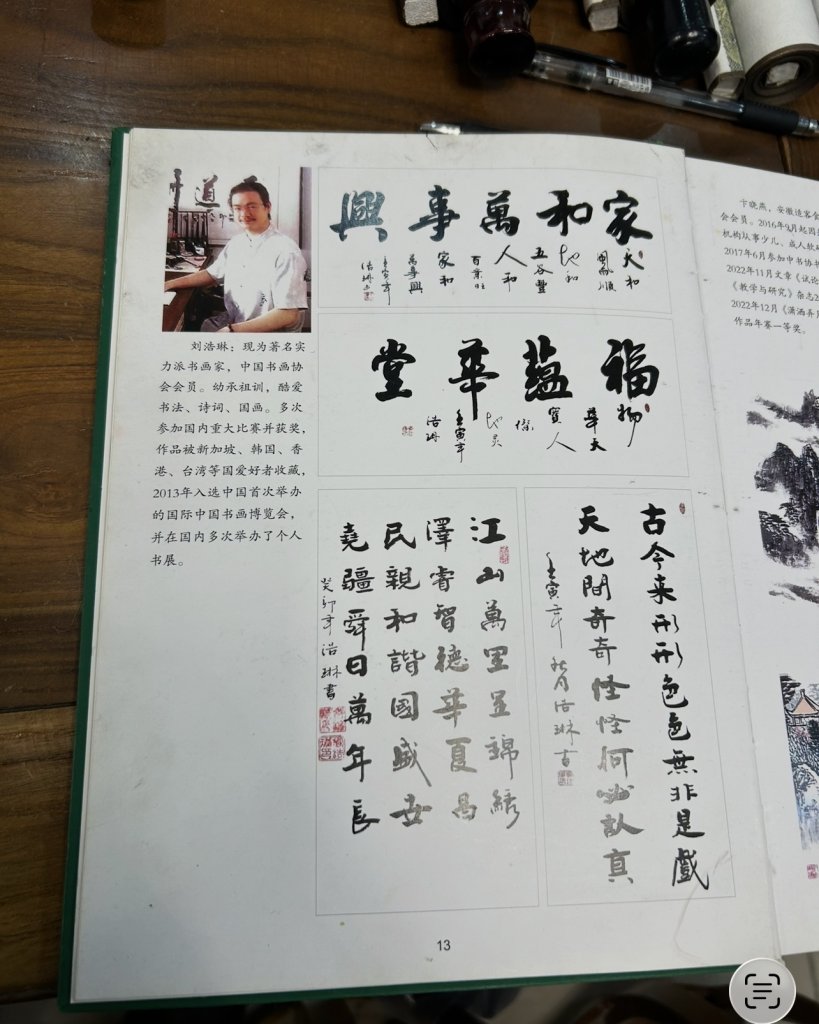 刘浩琳：现为著名实
力派书画家，中国书画协
会会员。幼承祖训，酷爱
书法、诗词、国画。多次
参加国内重大比赛并获奖，
作品被新加坡、韩国、香
港、台湾等国爱好者收藏，
2013年入选中国首次举办
的国际中国书画博览会，
并在国内多次举办了个人
书展。
家和萬事興
天和
國順
地和
五谷豐
人和
百業旺
家和
萬事興
壬寅年
浩琳书
福蘊華堂
物
華天
寳人
傑
地灵
壬寅年
浩琳
古今来形形色色無非是戲
天地間奇奇怪怪何必認真
壬寅年秋月浩琳書
江山萬里呈錦绣
澤睿智德華夏昌
民親和諧國盛世
堯疆舜日萬年長
癸卯年浩琳書
13
卞晓燕，安徽
会会员。2016年9月起
机构从事少儿、成人软
2017年6月参加中书协
2022年11月文章《试论
《教学与研究》杂志
2022年12月《潇洒弄
作品年赛一等奖。